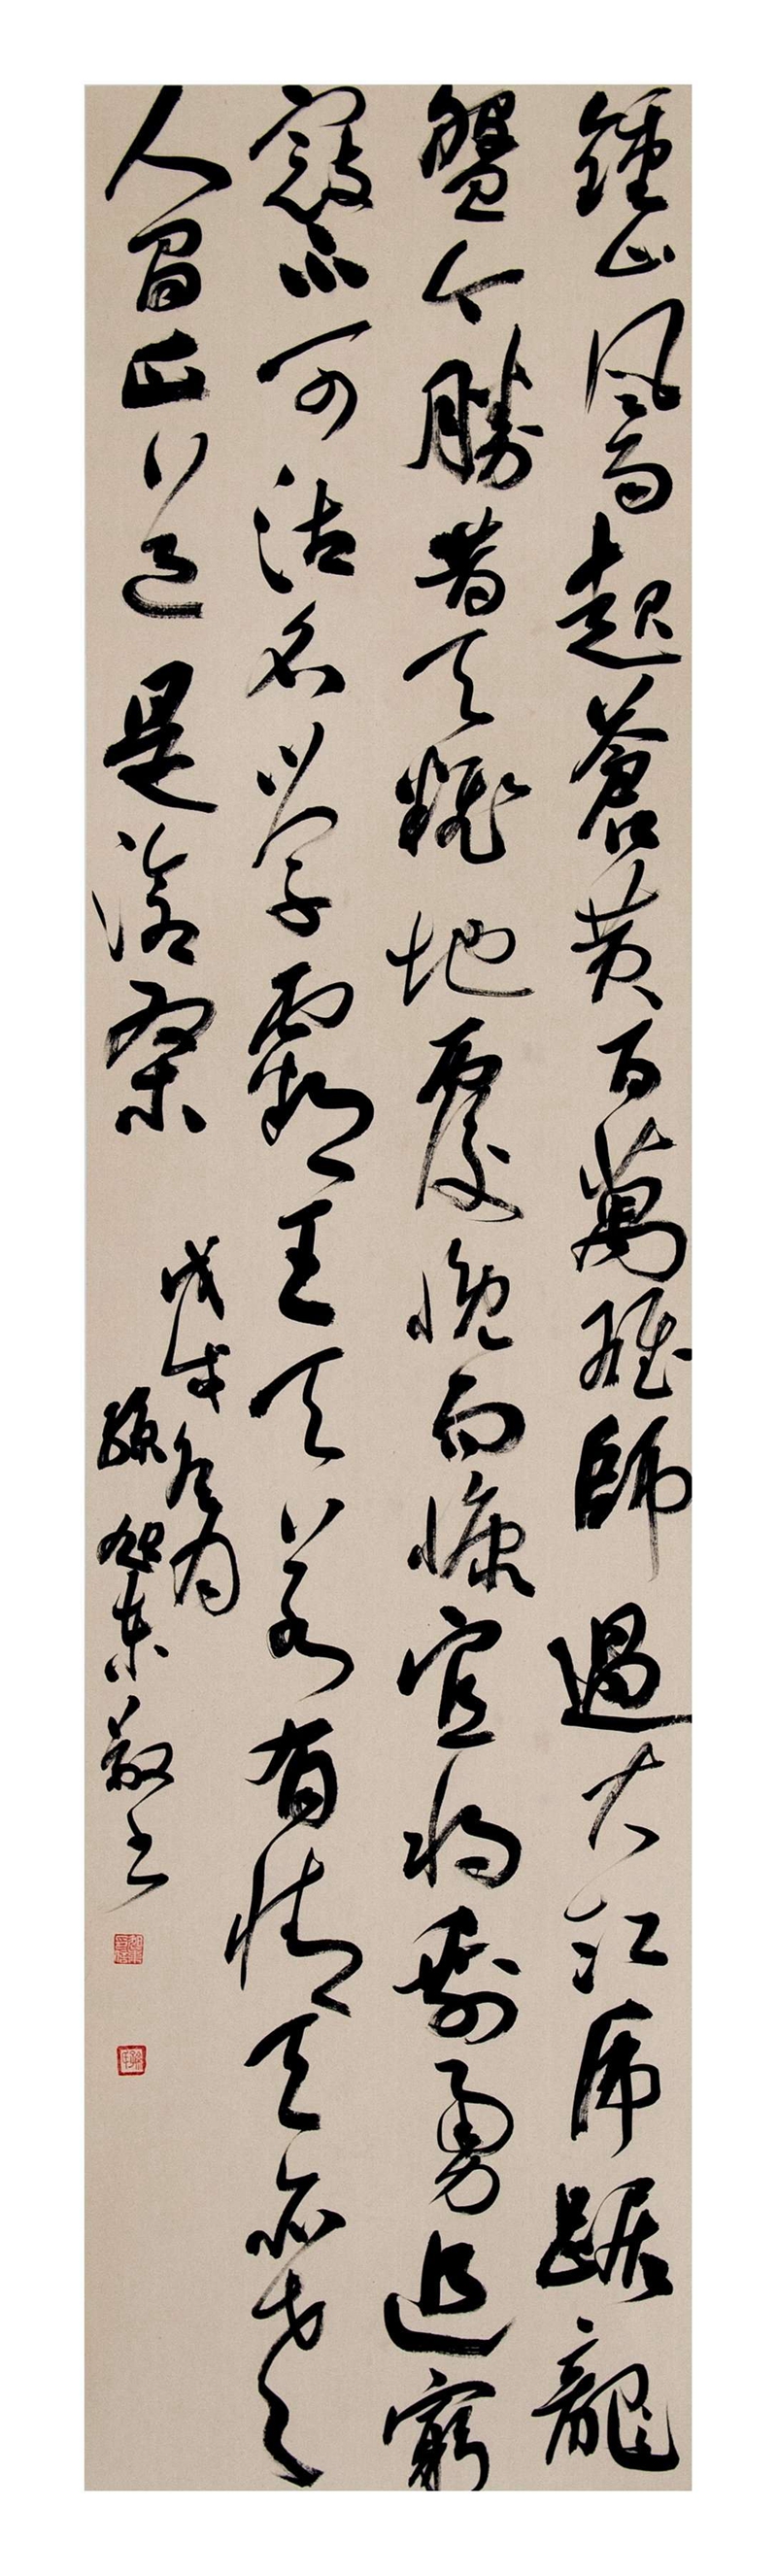 鍾山風雨起蒼黃百萬雄師過大江虎踞龍
盤今勝昔天翻地覆慨而慷宜將剩勇追窮
寇不可沽名學霸王天若有情天亦老
人間正道是滄桑
戊戌冬月
孫旭東敬书